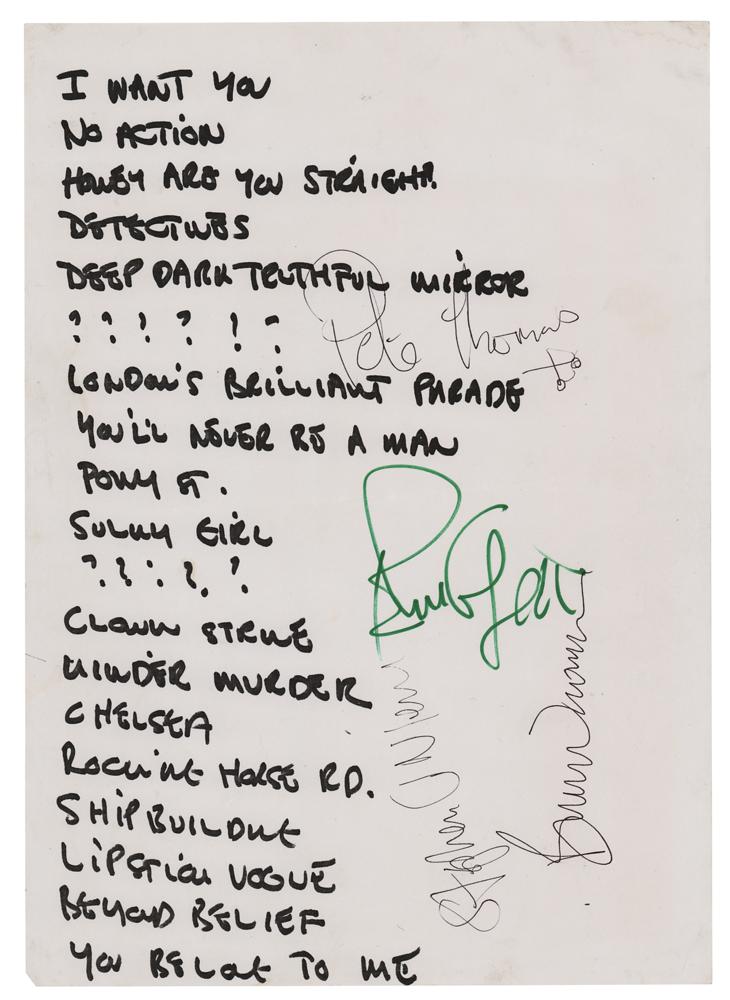 I WANT YOU
NO ACTION
HONEY ARE YOU STRAIGHT.
DETECTIVES
DEEP DARK TRUTHFUL MIRROR
? ? ! ? ! ?
Pete Thomas
LONDON'S BRILLIANT PARADE
YOU'LL NEVER BE A MAN
PONY ST.
SULKY GIRL
? ? ! ? !
CLOWN STRIKE
KINDER MURDER
CHELSEA
ROCKING HORSE RD.
SHIPBUILDING
LIPSTICK VOGUE
BEYOND BELIEF
YOU BELONG TO ME
Bruce Thomas